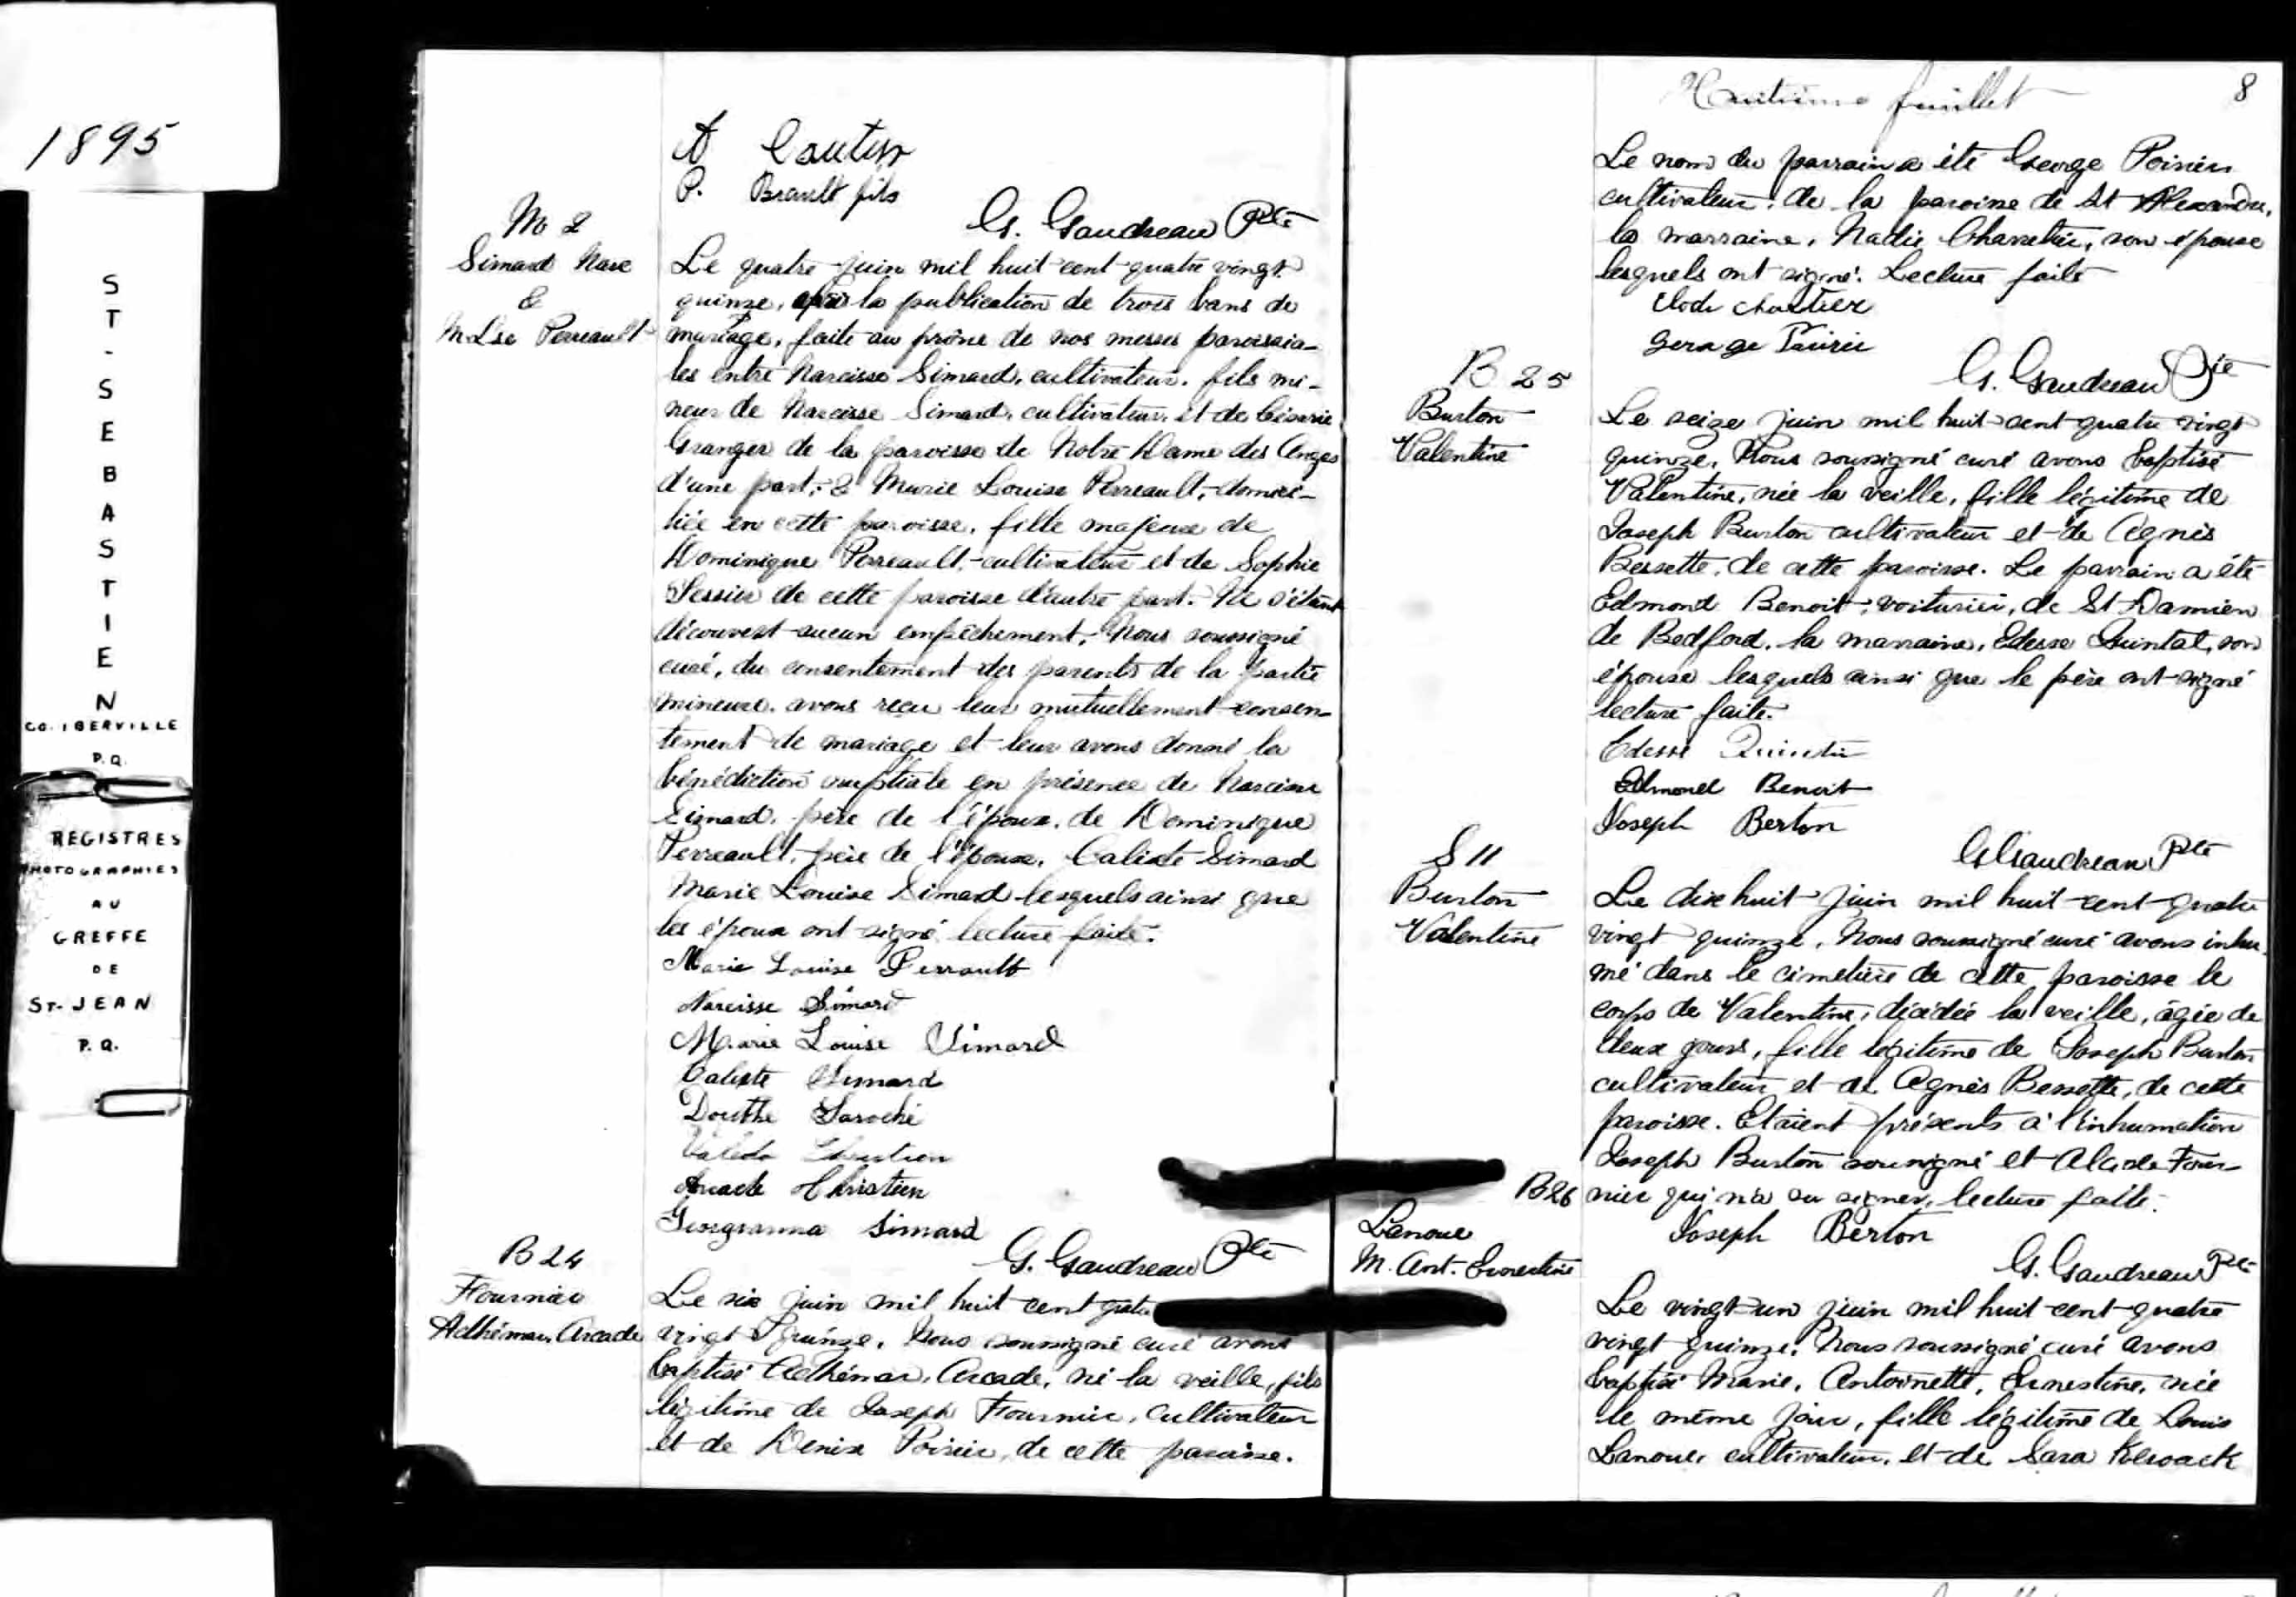 1895
ST-SEBASTIEN
CO. IBERVILLE
P.Q.
REGISTRES
PHOTOGRAPHIES
AU
GREFFE
DE
ST-JEAN
P.Q.
P. Brault fils
G. Gaudreau Ptre
M 2
Simard Narc
&
M Lse Perreault
Le quatre juin mil huit cent quatre vingt
quinze, après la publication de trois bans de
mariage, faite au prône de nos messes paroissia-
les entre Narcisse Simard, cultivateur, fils mi-
neur de Narcisse Simard, cultivateur, et de Césarie
Granger de la paroisse de Notre Dame des Anges
d'une part, & Marie Louise Perreault, domici-
liée en cette paroisse, fille majeure de
Dominique Perreault, cultivateur et de Sophie
Tessier de cette paroisse d'autre part. Ne s'étant
découvert aucun empêchement, Nous soussigné
curé, du consentement des parents de la partie
mineure, avons reçu leur mutuellement consen-
tement de mariage et leur avons donné la
bénédiction nuptiale en présence de Narcisse
Simard, père de l'époux, de Dominique
Perreault, père de l'épouse, Calixte Simard
Marie Louise Simard lesquels ainsi que
les époux ont signé, lecture faite.
Marie Louise Perrault
Narcisse Simard
Marie Louise Simard
Calixte Simard
Arcade Christien
Georgianna Simard
G. Gaudreau Ptre
B 24
Fournier
Adhémar, Arcade
Le six juin mil huit cent quatre
vingt quinze, Nous soussigné curé avons
baptisé Adhémar, Arcade, né la veille, fils
légitime de Joseph Fournier, cultivateur
et de Denise Poirier, de cette paroisse.
Huitième feuillet
8
Le nom du parrain a été George Poirier
cultivateur, de la paroisse de St Alexandre,
la marraine, son épouse
lesquels ont signé. Lecture faite
G. Gaudreau Ptre
B 25
Burton
Valentine
Le seize juin mil huit cent quatre vingt
quinze, Nous soussigné curé avons baptisé
Valentine, née la veille, fille légitime de
Joseph Burton cultivateur et de Agnès
Bessette, de cette paroisse. Le parrain a été
Edmond Benoit, voiturier, de St Damien
de Bedford, la marraine, Edesse Quintal, son
épouse lesquels ainsi que le père ont signé
lecture faite.
Edmond Benoit
Joseph Berton
G Gaudreau Ptre
S 11
Burton
Valentine
Le dix huit juin mil huit cent quatre
vingt quinze, Nous soussigné curé avons inhu-
mé dans le cimetière de cette paroisse le
corps de Valentine, décédée la veille, âgée de
deux jours, fille légitime de Joseph Burton
cultivateur et de Agnès Bessette, de cette
paroisse. Etaient présents à l'inhumation
Joseph Burton soussigné et Alcide Four-
nier qui n'a su signer, lecture faite.
Joseph Berton
G. Gaudreau Ptre
B 26
Lanoue
M. Ant. Ernestine
Le vingt un juin mil huit cent quatre
vingt quinze, Nous soussigné curé avons
baptisé Marie, Antoinette, Ernestine, née
le même jour, fille légitime de Louis
Lanoue, cultivateur, et de Sara Keroack